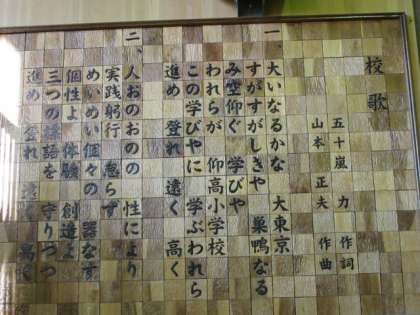 校歌
五十嵐 力 作詞
山本 正夫 作曲
一、
大いなるかな 大東京
すがすがしきや 巣鴨なる
み空仰ぐ 学びや
われらが 仰高小学校
この学びやに 学ぶわれら
進め 登れ 遠く 高く
二、
人おのおのの 性により
実践躬行 怠らず
めいめい個々の 器なす
個性よ 体験 創造よ
三つの標語を 守りつつ
進め 登れ 遠く 高く